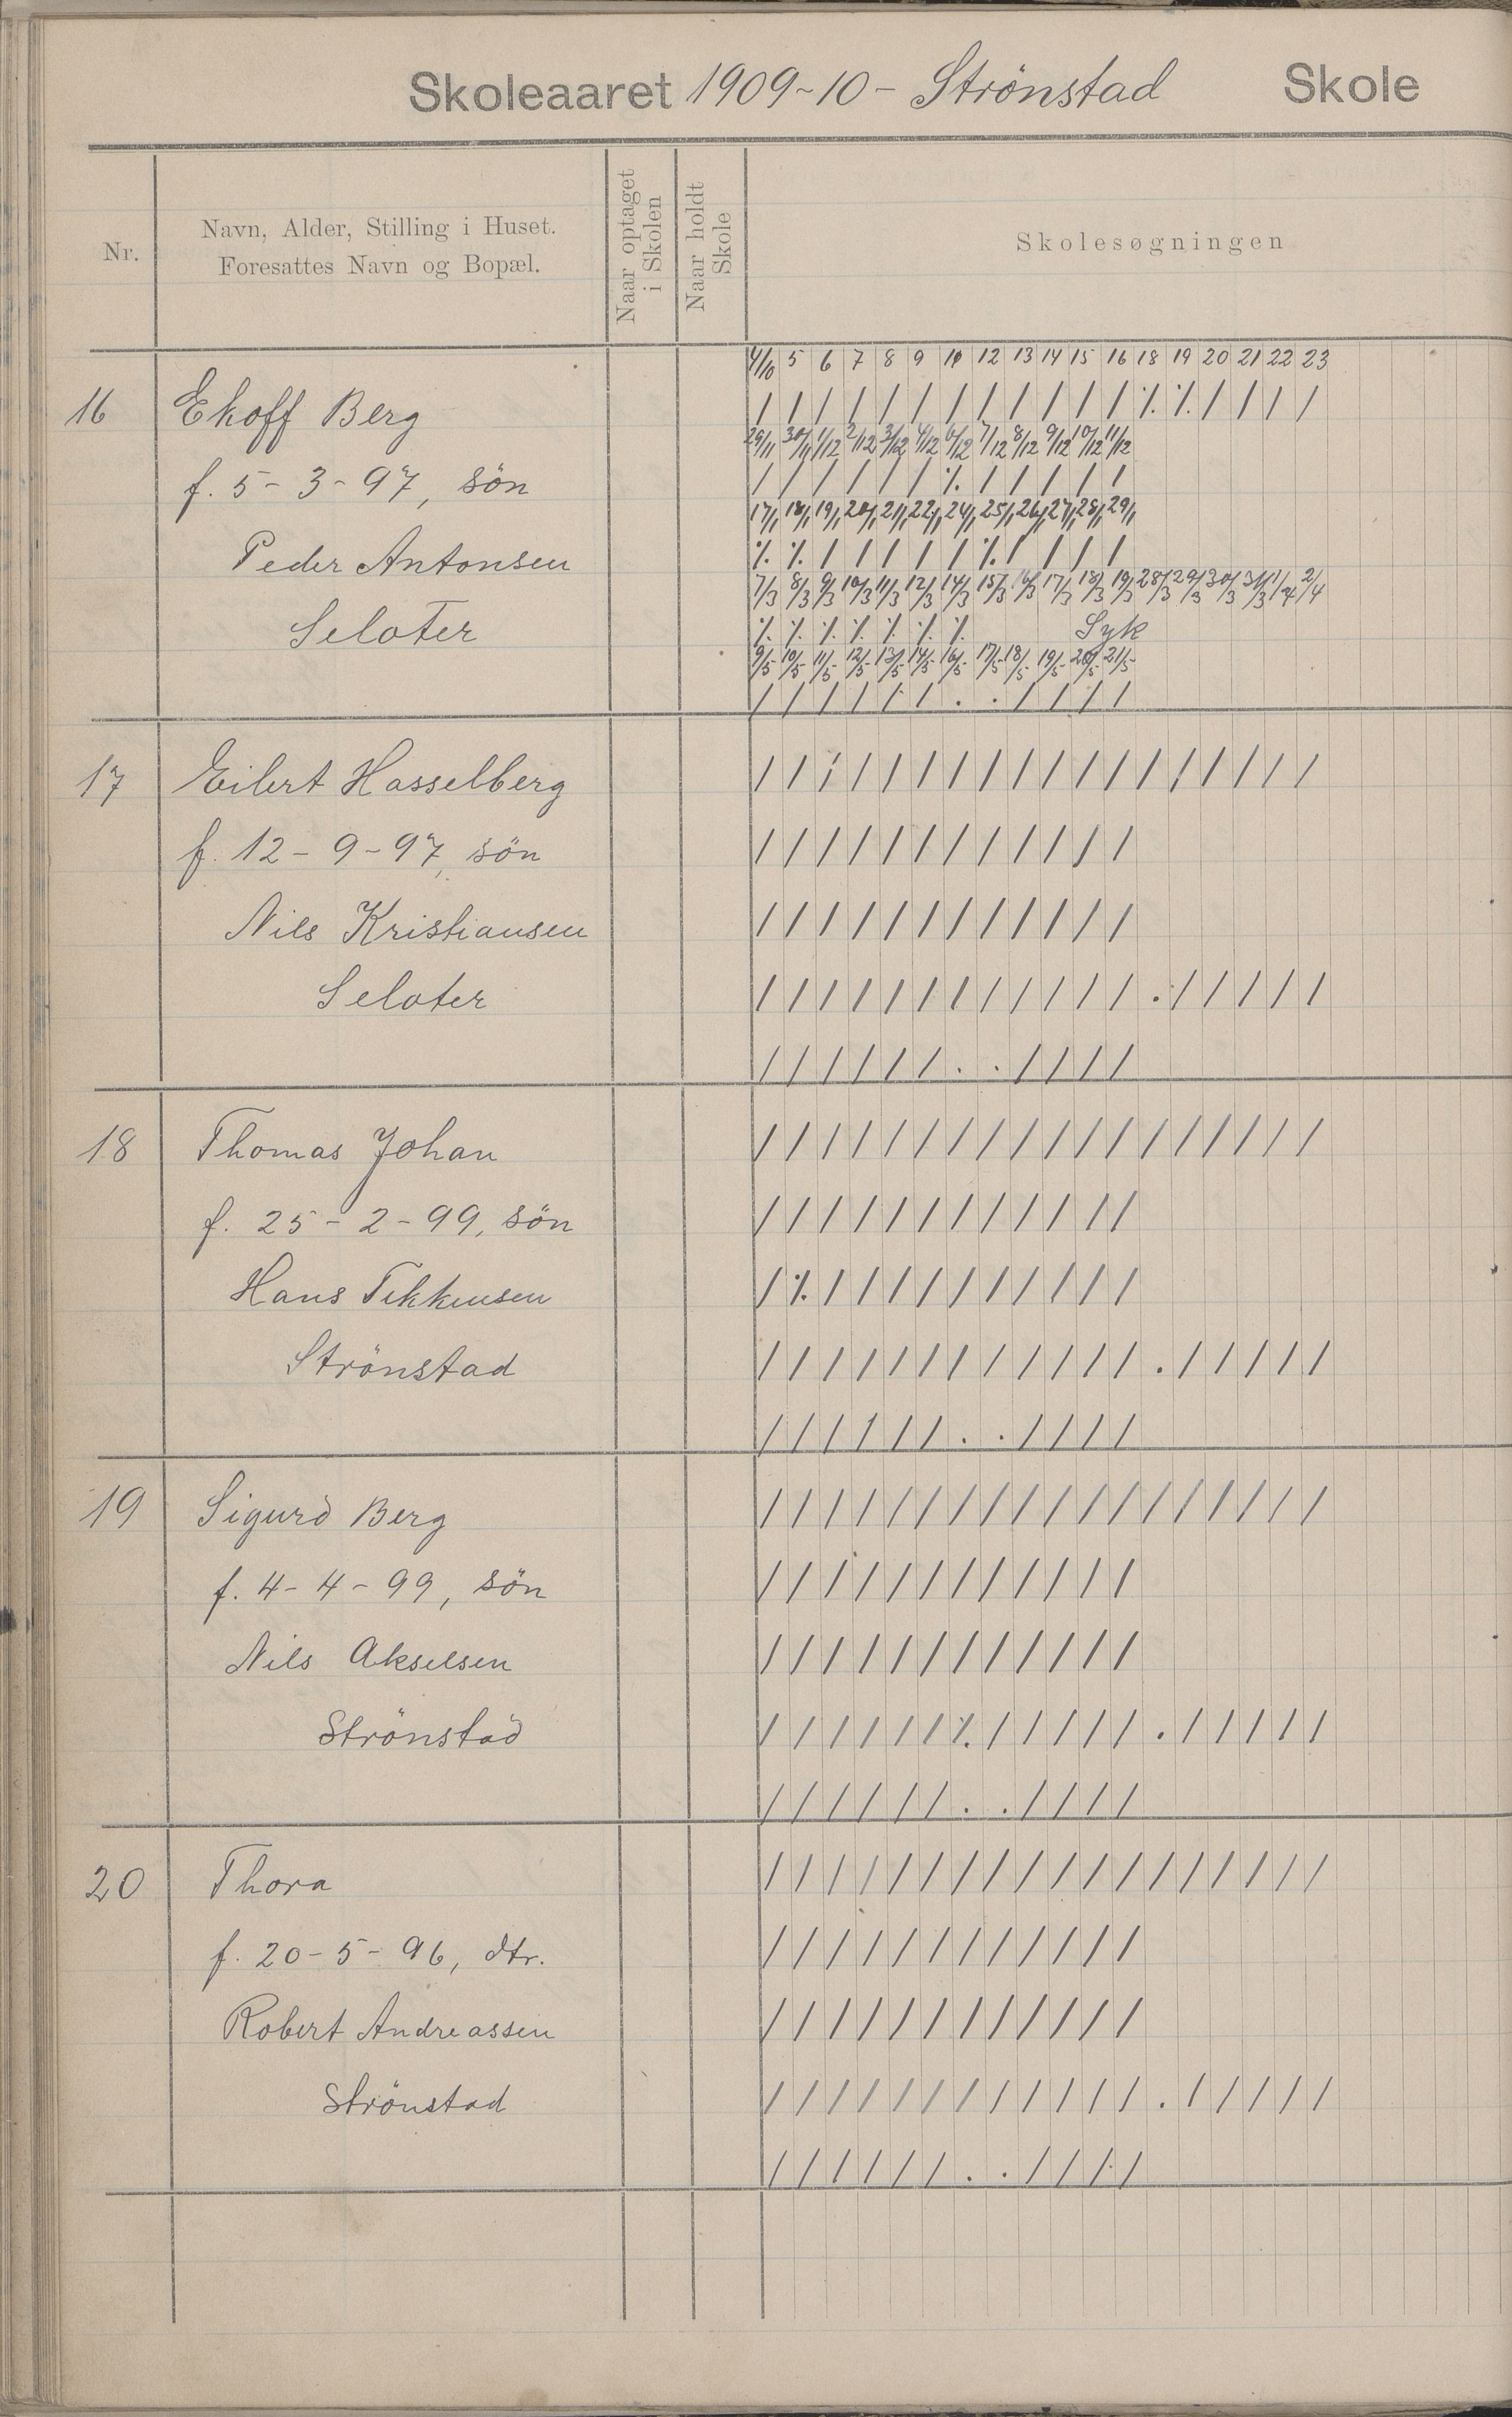 Skoleaaret 1909-10 - Strönstad Skole
Nr.
Navn, Alder, Stilling i Huset.
Foresattes Navn og Bopæl.
Naar optaget
i Skolen
Naar holdt
Skole
Skolesøgningen
4/10 5 6 7 8 9 11 12 13 14 15 16 18 19 20 21 22 23
16 Ekoff Berg / / / / / / / / / / / / ٪ ٪ / / / /
29/11 30/11 1/12 2/12 3/12 4/12 6/12 7/12 8/12 9/12 10/12 11/12
f. 5-3-97, sön / / / / / / ٪ / / / / /
17/1 18/1 19/1 20/1 21/1 22/1 24/1 25/1 26/1 27/1 28/1 29/1
Peder Antonsen ٪ ٪ / / / / / ٪ / / / /
7/3 8/3 9/3 10/3 11/3 12/3 14/3 15/3 16/3 17/3 18/3 19/3 28/3 29/3 30/3 31/3 1/4 2/4
Selåter ٪ ٪ ٪ ٪ ٪ ٪ ٪ Syk
9/5 10/5 11/5 12/5 13/5 14/5 16/5 17/5 18/5 19/5 20/5 21/5
/ / / / / / . . / / / /
17 Eilert Hasselberg / / / / / / / / / / / / / / / / / /
f. 12-9-97, sön / / / / / / / / / / / /
Nils Kristiansen / / / / / / / / / / / /
Selåter / / / / / / / / / / / / . / / / / /
/ / / / / / . . / / / /
18 Thomas Johan / / / / / / / / / / / / / / / / / /
f. 25-2-99, sön / / / / / / / / / / / /
Hans Tekkensen / ٪ / / / / / / / / / /
Strönstad / / / / / / / / / / / / . / / / / /
/ / / / / / . . / / / /
19 Sigurd Berg / / / / / / / / / / / / / / / / / /
f. 4-4-99, sön / / / / / / / / / / / /
Nils Akselsen / / / / / / / / / / / /
Strönstad / / / / / / ٪ / / / / / . / / / / /
/ / / / / / . . / / / /
20 Thora / / / / / / / / / / / / / / / / / /
f. 20-5-96, dtr. / / / / / / / / / / / /
Robert Andreassen / / / / / / / / / / / /
Strönstad / / / / / / / / / / / / . / / / / /
/ / / / / / . . / / / /